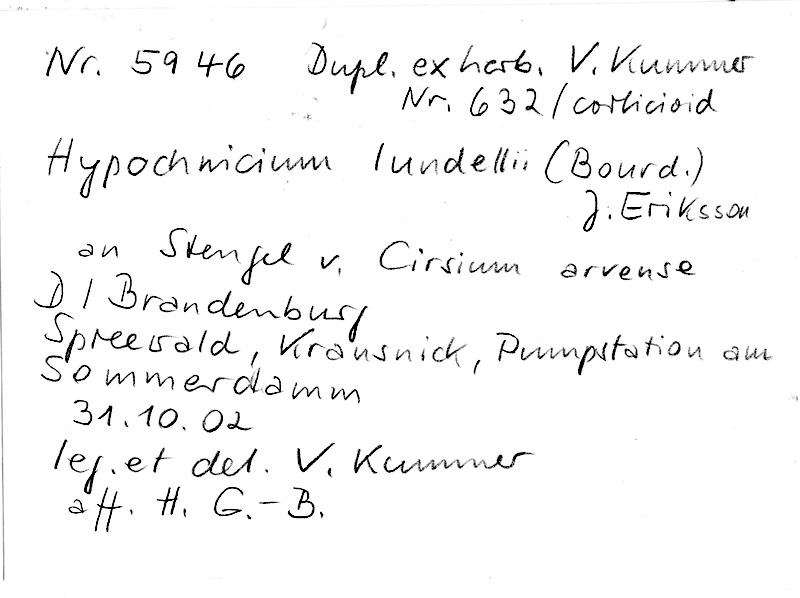 Nr. 5946 Dupl. ex herb. V. Kummer
Nr. 632 / corticioid
Hypochnicium lundellii (Bourd.)
J. Eriksson
an Stengel v. Cirsium arvense
D / Brandenburg
Spreewald, Krausnick, Pumpstation am
Sommerdamm
31.10.02
leg. et det. V. Kummer
aff. H. G.-B.